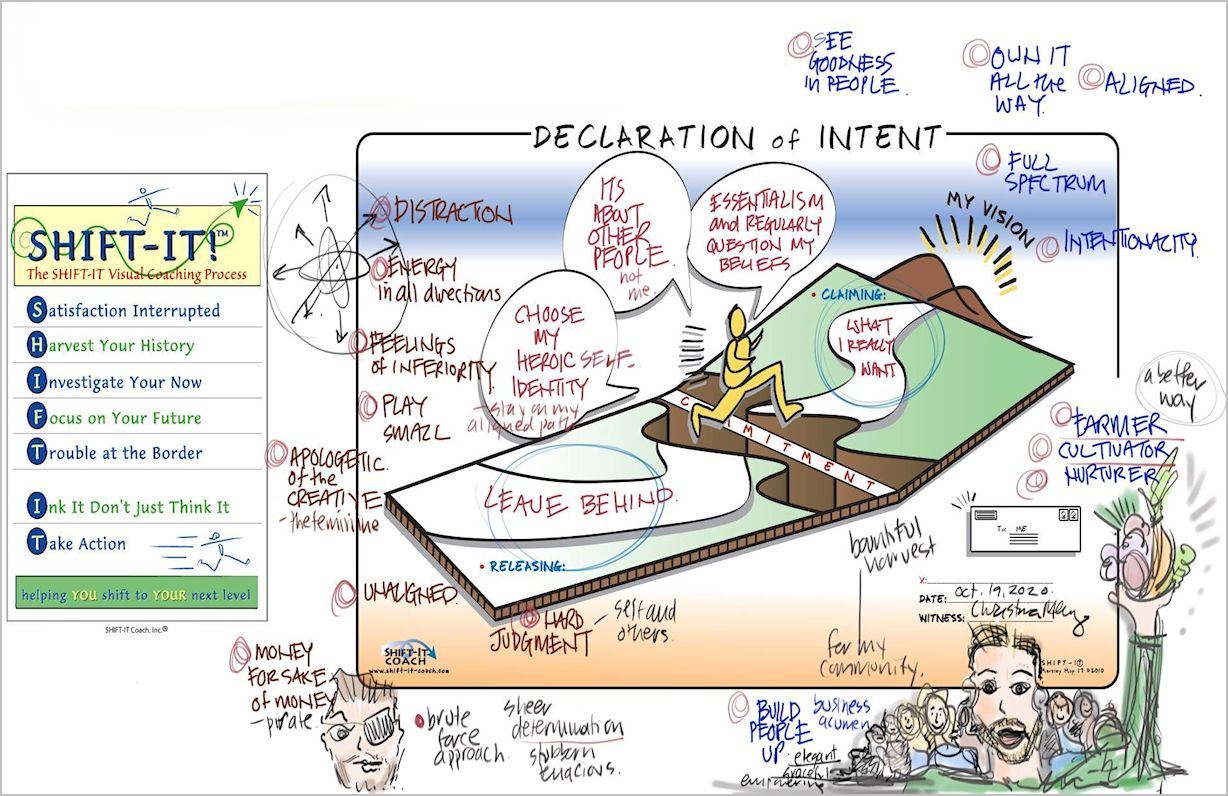 SEE
GOODNESS
in PEOPLE.
OWN IT
ALL the
WAY.
ALIGNED.
DECLARATION of INTENT
FULL
SPECTRUM
MY VISION
INTENTIONALITY.
SHIFT-IT!™
The SHIFT-IT Visual Coaching Process
Satisfaction Interrupted
Harvest Your History
Investigate Your Now
Focus on Your Future
Trouble at the Border
Ink It Don't Just Think It
Take Action
helping YOU shift to YOUR next level
SHIFT-IT Coach, Inc.®
DISTRACTION
ENERGY
in all directions
FEELINGS
OF INFERIORITY.
PLAY
SMALL
APOLOGETIC.
of the
CREATIVE
- the feminine
UNALIGNED.
HARD
JUDGMENT
- self and
others.
MONEY
FOR SAKE
of MONEY
- pirate.
brute
force
approach.
sheer
determination
stubborn
tenacious.
ITS
ABOUT
OTHER
PEOPLE.
not
me.
ESSENTIALISM
and REGULARLY
QUESTION MY
BELIEFS
CHOOSE
MY
HEROIC SELF.
IDENTITY
- stay on my
aligned path
• CLAIMING:
WHAT
I REALLY
WANT
COMMITMENT
LEAVE BEHIND.
• RELEASING:
a better
way
FARMER
CULTIVATOR
NURTURER
To: ME
bountiful
harvest
for my
community.
X:
DATE: Oct. 19, 2020.
WITNESS: Christina
SHIFT-IT
COACH
www.shift-it-coach.com
©2010
BUILD
PEOPLE
UP
business
acumen
• elegant
graceful
empowering